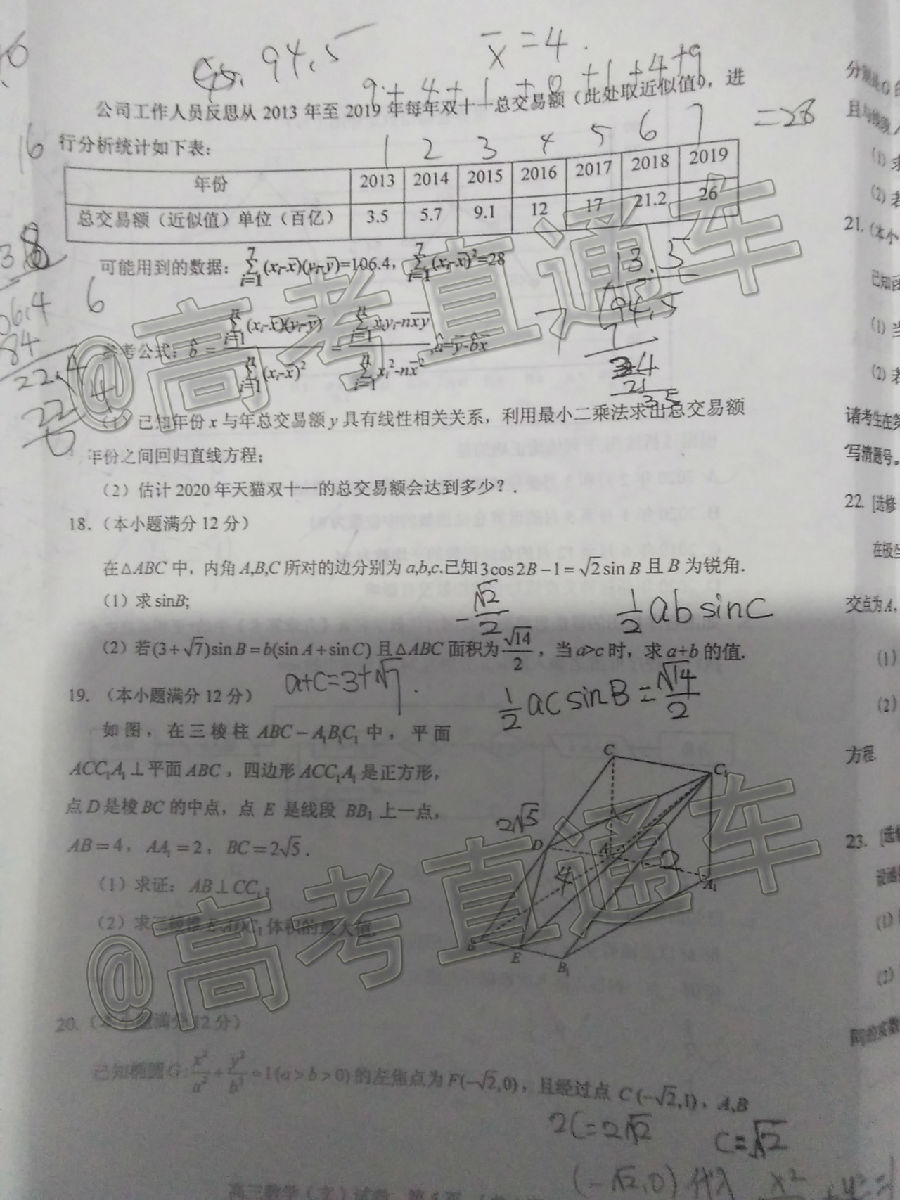 94.5
x̄=4.
9+4+1+0+1+4+9
=28
公司工作人员反思从 2013 年至 2019 年每年双十一总交易额（此处取近似值），进
行分析统计如下表：
1 2 3 4 5 6 7
年份 2013 2014 2015 2016 2017 2018 2019
总交易额（近似值）单位（百亿） 3.5 5.7 9.1 12 17 21.2 26
可能用到的数据：∑_{i=1}^{7}(x_i-x̄)(y_i-ȳ)=106.4, ∑_{i=1}^{7}(x_i-x̄)²=28
13.5
94.5
参考公式：b̂=∑_{i=1}^{n}(x_i-x̄)(y_i-ȳ)/∑_{i=1}^{n}(x_i-x̄)²=∑_{i=1}^{n}x_iy_i-nx̄ȳ/∑_{i=1}^{n}x_i²-nx̄², â=ȳ-b̂x̄
（1）已知年份 x 与年总交易额 y 具有线性相关关系，利用最小二乘法求出总交易额
年份之间回归直线方程；
（2）估计 2020 年天猫双十一的总交易额会达到多少？.
18.（本小题满分 12 分）
在△ABC 中，内角 A,B,C 所对的边分别为 a,b,c.已知 3cos2B-1=√2sinB 且 B 为锐角.
（1）求 sinB;
-√2/2
1/2 ab sinC
（2）若(3+√7)sinB=b(sinA+sinC) 且△ABC 面积为 √14/2，当 a>c 时，求 a+b 的值.
a+c=3+√7.
1/2 acsinB=√14/2
19.（本小题满分 12 分）
如图，在三棱柱 ABC-A₁B₁C₁ 中，平面
ACC₁A₁⊥平面 ABC，四边形 ACC₁A₁ 是正方形，
点 D 是棱 BC 的中点，点 E 是线段 BB₁ 上一点，
AB=4，AA₁=2，BC=2√5.
（1）求证：AB⊥CC₁；
（2）求三棱锥 E-ADC₁ 体积的最大值.
C
C₁
2√5
D
A
2
4
A₁
B
E
B₁
20.（本小题满分 12 分）
已知椭圆 G: x²/a²+y²/b²=1(a>b>0) 的左焦点为 F(-√2,0)，且经过点 C(-√2,1)，A,B
2C=2√2
C=√2
(-√2,0) 代入 x²
高三数学（文）试卷
分别是
且与
(1) 求
(2) 若
21.（本小
已知
(1) 当
(2) 若
请考生在
写清题号。
22.［选修
在极坐
交点为 A，
(1)
(2)
方程.
23.［选修
设
(1)
(2)
@高考直通车
@高考直通车